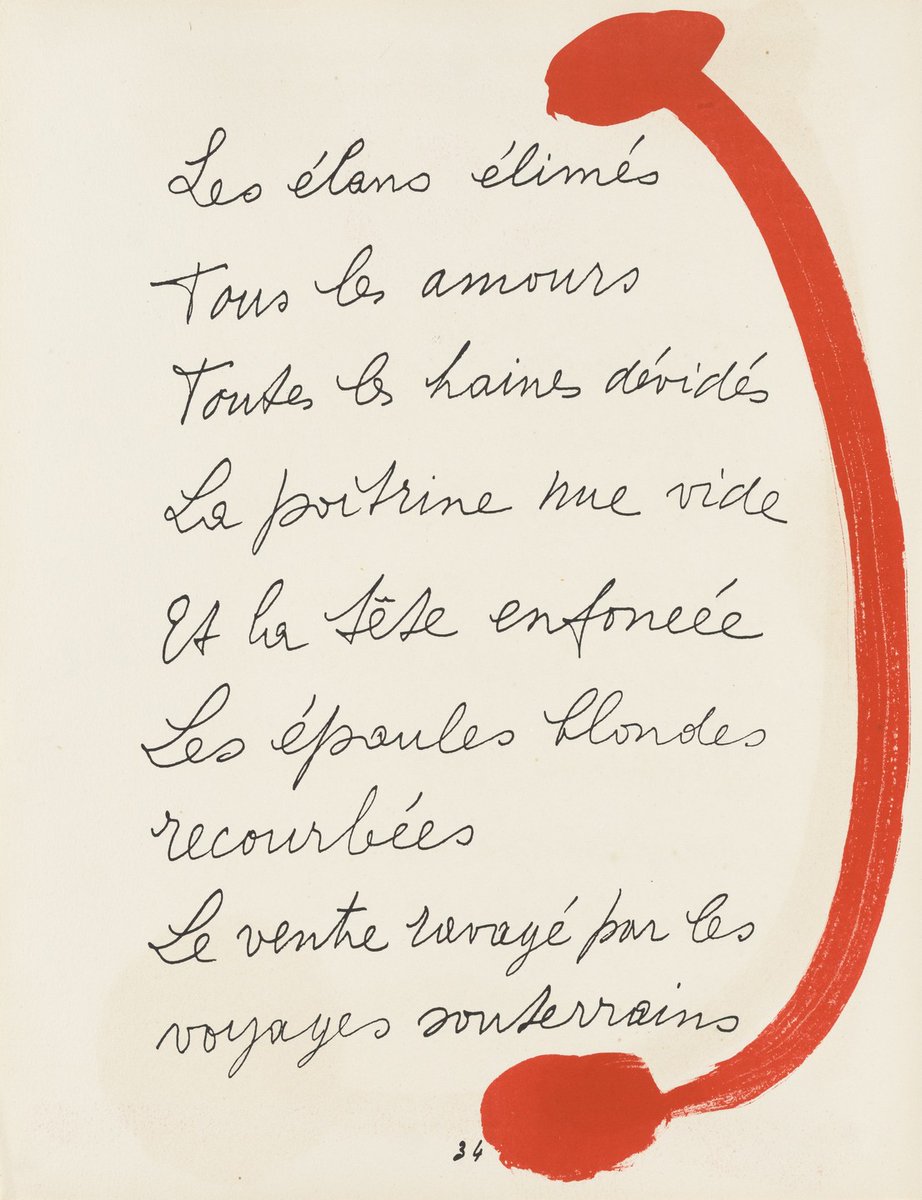 Les élans élimés
Tous les amours
Toutes les haines dévidés
La poitrine nue vide
Et la tête enfoncée
Les épaules blondes
recourbées
Le ventre ravagé par les
voyages souterrains
34